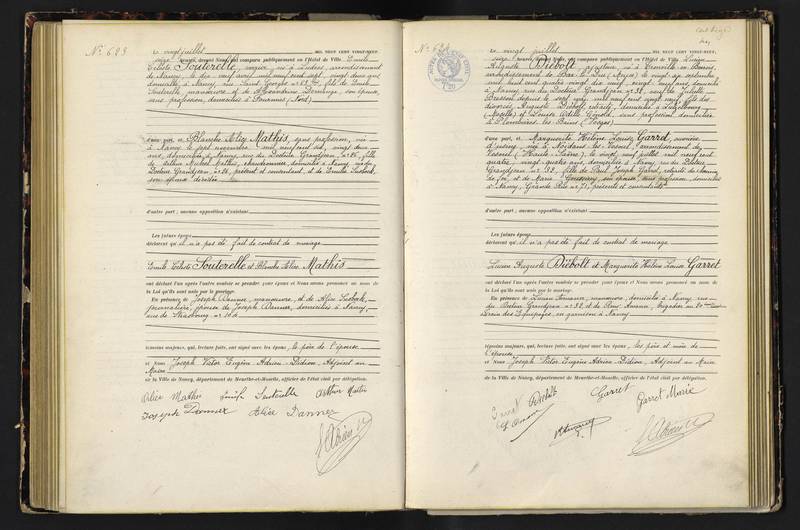 N° 683
Le vingt juillet MIL NEUF CENT VINGT-NEUF,
heures, devant Nous, ont comparu publiquement en l'Hôtel de Ville Emile
Celeste Souterelle, né à Ludres, arrondissement
de Nancy, le dix neuf avril mil neuf cent sept, vingt deux ans
domicilié à Nancy, rue Saint Georges n° fils de Emile
Souterelle, manoeuvre, et de Alexandrine Demange, son épouse,
sans profession, domiciliés à (Nord)
d'une part, et Blanche Alice Mathis, sans profession, née
à Nancy le sept novembre mil neuf cent six, vingt deux
ans, domiciliée à Nancy, rue du Docteur Grandjean n° 26, fille
de Arthur Michel Mathis, domicilié à Nancy rue du
Docteur Grandjean n° 26, présent et consentant, et de Emilie
son épouse décédée
d'autre part ; aucune opposition n'existant
Les futurs époux
déclarent qu'il n'a pas été fait de contrat de mariage
Emile Celeste Souterelle et Blanche Alice Mathis
ont déclaré l'un après l'autre vouloir se prendre pour époux et Nous avons prononcé au nom de
la Loi qu'ils sont unis par le mariage.
En présence de Joseph Danner, manoeuvre, et de Alice
épouse de Joseph Danner, domiciliés à Nancy,
rue de Strasbourg n°
témoins majeurs, qui, lecture faite, ont signé avec les époux, le père de l'épouse
et Nous Joseph Victor Eugène Adrien Didion, Adjoint au
Maire
de la Ville de Nancy, département de Meurthe-et-Moselle, officier de l'état civil par délégation.
Alice Mathis Emile Souterelle Arthur Mathis
Joseph Danner Alice Danner
N° 684
Le vingt juillet MIL NEUF CENT VINGT-NEUF,
heures, devant Nous, ont comparu publiquement en l'Hôtel de Ville Lucien
Auguste Diébolt, ajusteur, né à
arrondissement de Bar le Duc (Meuse) le vingt septembre
mil huit cent quatre vingt dix neuf, vingt neuf ans, domicilié
à Nancy, rue du Docteur Grandjean n° 32, veuf de Juliette
depuis le mil neuf cent vingt fils des
divorcés Auguste Diébolt, retraité, domicilié à
(Moselle) et Louise Odile sans profession, domiciliée
à Plombières les Bains (Vosges)
d'une part, et Marguerite Hélène Louise Garret, ouvrière
d'usine, née à Noidans les Vesoul, arrondissement de
Vesoul (Haute-Saône), le vingt juillet mil neuf cent
quatre, vingt quatre ans, domiciliée à Nancy, rue du Docteur
Grandjean n° 32, fille de Paul Joseph Garret, retraité de chemin
de fer, et de Marie son épouse, sans profession, domiciliés
à Nancy, Grande Rue n° 71, présents et consentants
d'autre part ; aucune opposition n'existant
Les futurs époux
déclarent qu'il n'a pas été fait de contrat de mariage
Lucien Auguste Diébolt et Marguerite Hélène Louise Garret
ont déclaré l'un après l'autre vouloir se prendre pour époux et Nous avons prononcé au nom de
la Loi qu'ils sont unis par le mariage.
En présence de Lucien manoeuvre, domicilié à Nancy, rue
du Docteur Grandjean n° 32, et de brigadier au
train des Equipages, en garnison à Nancy
témoins majeurs, qui, lecture faite, ont signé avec les époux, les père et mère de
l'épouse
et Nous Joseph Victor Eugène Adrien Didion, Adjoint au Maire
de la Ville de Nancy, département de Meurthe-et-Moselle, officier de l'état civil par délégation.
Garret Diébolt Garret Garret Marie